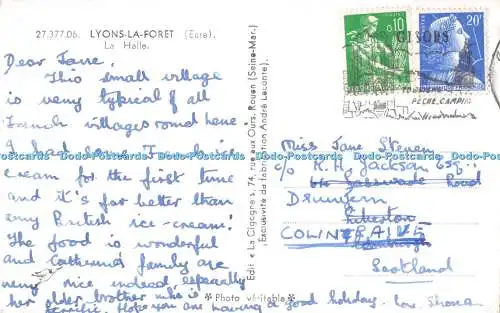 27.377.06. LYONS-LA-FORET (Eure).
La Halle.
Dear Jane,
This small village
is very typical of all
French villages round here.
I had some French ice
cream for the first time
and it's far better than
any British ice-cream!
The food is wonderful
and Catherine's family are
very nice indeed, especially
her older brother who is
terrific. Hope you are having a good holiday. love Sharon
Edit. « La Cigogne », 74, rue aux Ours, Rouen (Seine-Mar.)
Exclusivité de fabrication André Leconte.
* Photo véritable *
0,10
20F
GISORS
PÊCHE, CAMPING
Miss Jane Steven
c/o R. H. Jackson Esq.
Road
Drumfern
COLINTRAIVE
Scotland
Postcards Dodo-Postcards Dodo-Postcards Dodo-Postcards Dodo-Postcards